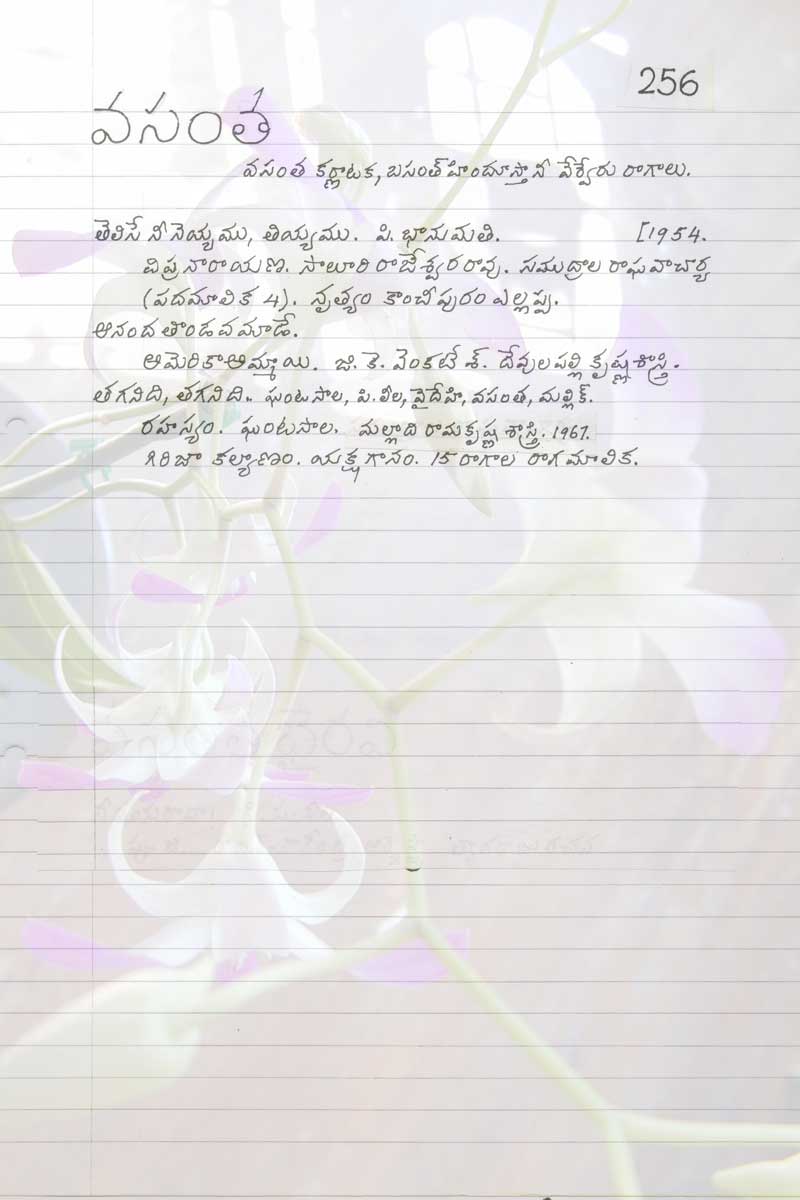 256
వసంత
వసంత కర్ణాటక, బసంత్ హిందూస్తానీ వేర్వేరు రాగాలు.
తెలిసే నీ నెయ్యము, తియ్యము. పి. భానుమతి. [1954.
విప్రనారాయణ. సాలూరి రాజేశ్వరరావు. సముద్రాల రాఘవాచార్య
(పదమాలిక 4). నృత్యం కాంచీపురం ఎల్లప్ప.
ఆనంద తాండవమాడే.
అమెరికా అమ్మాయి. జి. కె. వెంకటేశ్. దేవులపల్లి కృష్ణశాస్త్రి.
తగనిది, తగనిది.. ఘంటసాల, పి. లీల, వైదేహి, వసంత, మల్లిక్.
రహస్యం. ఘంటసాల. మల్లాది రామకృష్ణ శాస్త్రి. 1967.
గిరిజా కల్యాణం. యక్షగానం. 15 రాగాల రాగమాలిక.